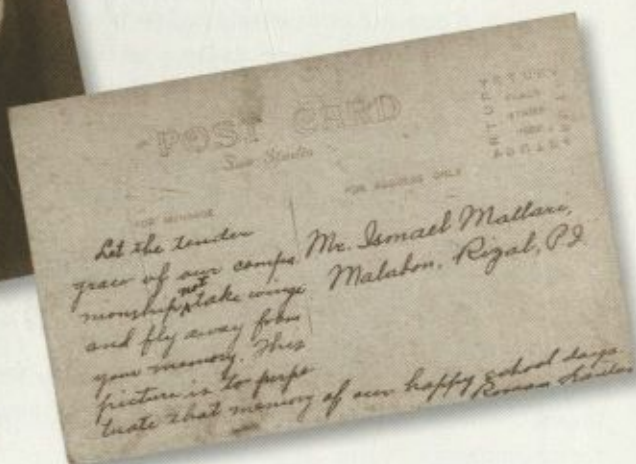 POST CARD
Sun Studio
PLACE
STAMP
HERE
FOR MESSAGE
FOR ADDRESS ONLY
Let the tender
grace of our compa
nionship not take wings
and fly away from
your memory. This
picture is to perpe
tuate that memory of our happy school days
Mr. Ismael Mallari,
Malabon, Rizal, P.I